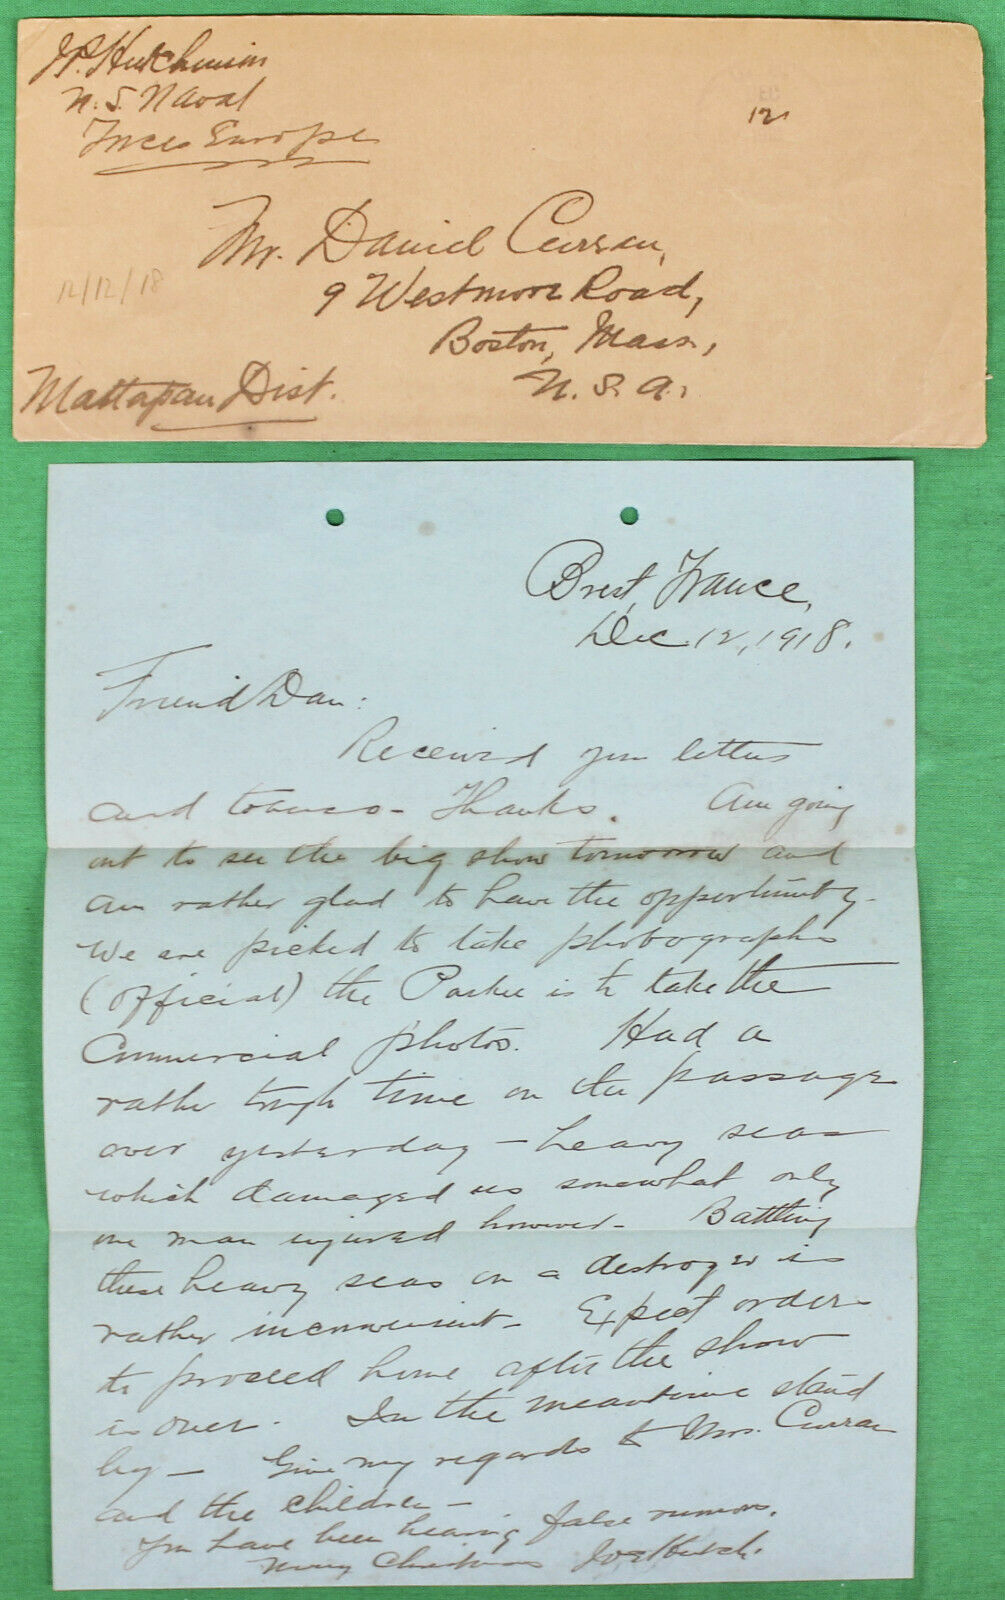 J.P. Hutchinson
U.S. Naval
Forces Europe
12
Mr. Daniel Curran,
9 Westmore Road,
Boston, Mass.,
U. S. A.
12/12/18
Mattapan Dist.
Brest, France,
Dec. 12, 1918.
Friend Dan:
Received your letters
and tobacco - Thanks. Am going
out to see the big show tomorrow and
am rather glad to have the opportunity.
We are picked to take photographs
(official) the Parkee is to take the
Commercial photos. Had a
rather tough time on the passage
over yesterday - heavy seas
which damaged us somewhat only
one man injured however - Battling
these heavy seas on a destroyer is
rather inconvenient - Expect orders
to proceed home after the show
is over. In the meantime stand
by - Give my regards to Mrs. Curran
and the children -
You have been hearing false rumors.
Merry Christmas Joe Hutch.